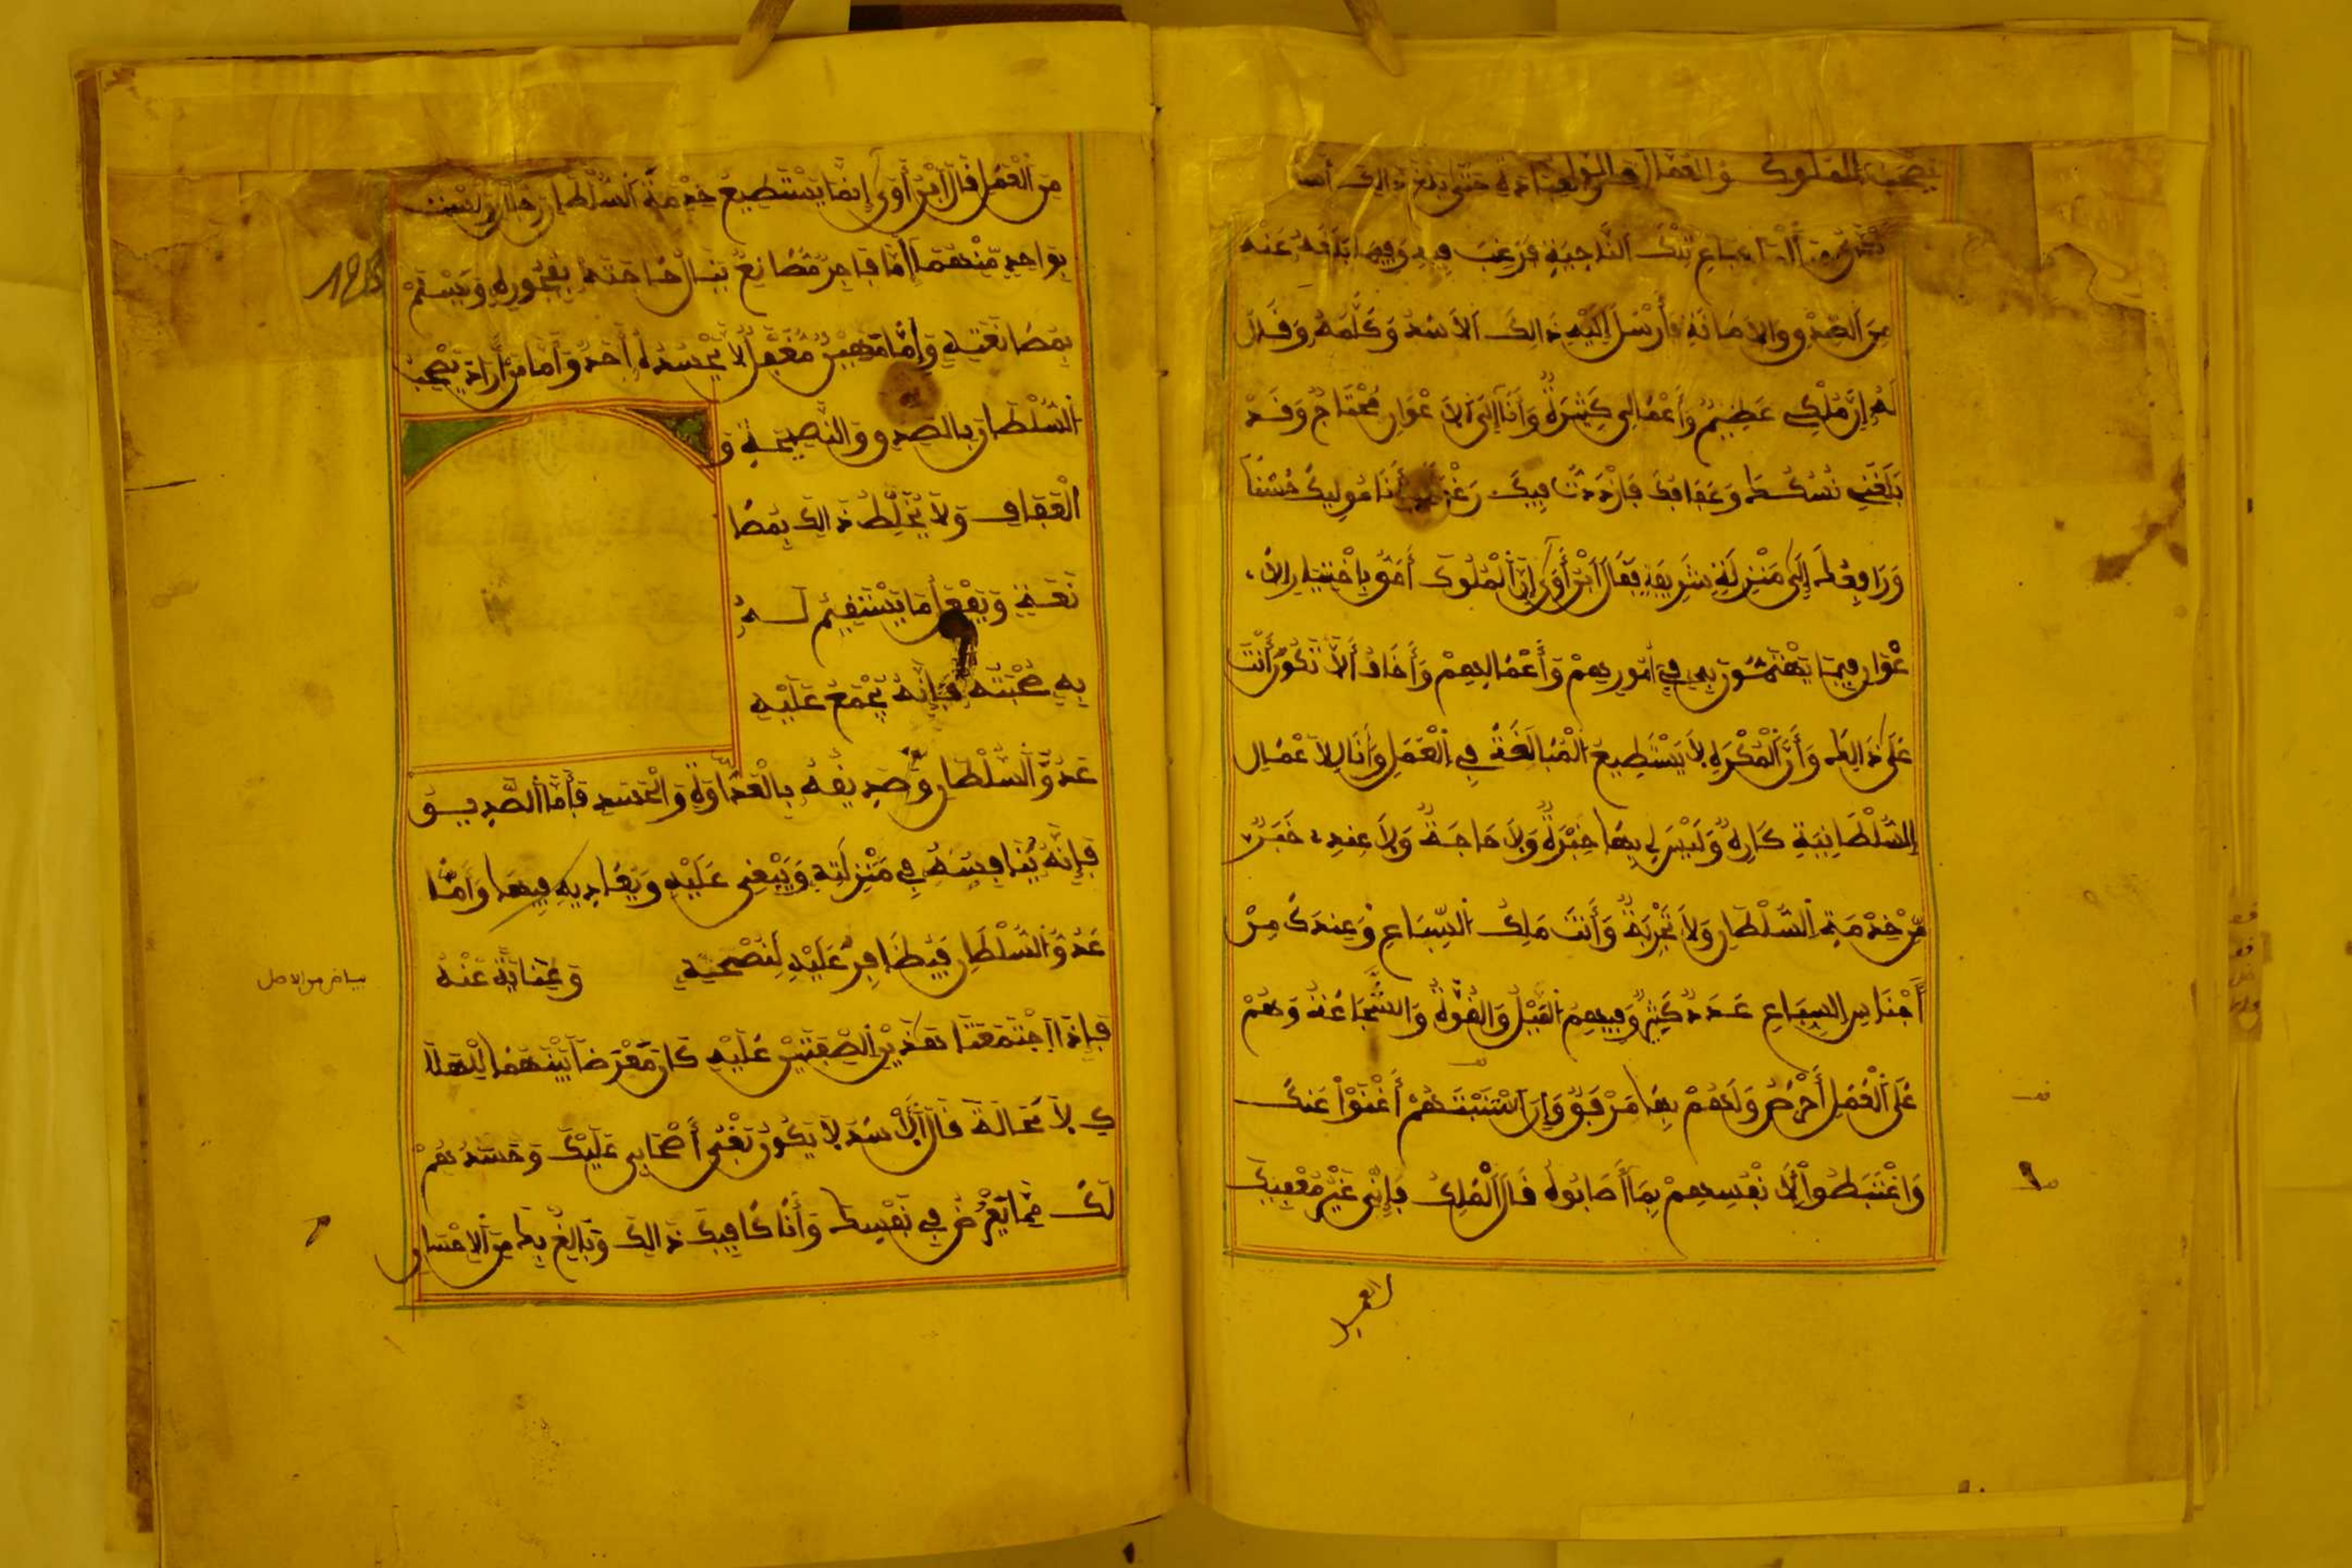 من السباع تلك الناحية فرغب فيه وفيما بلغه عنه
من الصدق والامانة فأرسل إليه ذالك الاسد وكلمه وقال
له إن ملكي عظيم وأعمالي كثيرة وأنا إلى الاعوان محتاج وقد
بلغني نسكك وعفافك فازددت فيك رغبة وأنا موليك حسنا
ورافعك إلى منزلة شريفة فقال ابن أوى إن الملوك أحق باختيار الا
عوان فيما يهتمون به في أمورهم وأعمالهم وأخاف ألا تكون أنت
على ذالك وأن المكره لا يستطيع المبالغة في العمل وأنا لاعمال
السلطانية كاره وليس لي بها خبرة ولا حاجة ولا عندي خبر
من خدمة السلطان ولا تجربة وأنت ملك السباع وعندك من
أجناس السباع عدد كثير وفيهم النبل والقوة والشجاعة وهم
على العمل أحرص ولهم بها مرفق وإن استنبتهم أغنوا عنك
واغتبطوا لانفسهم بما أصابوه قال الملك فإني غير معفيك
من العمل قال ابن أوى إنما يستطيع خدمة السلطان رجلان لست
بواحد منهما إما فاجر مصانع ينال حاجته بفجوره ويسلم
بمصانعته وإما مهين مغفل لا يحسده أحد وأما من أراد يصحب
السلطان بالصدق والنصيحة و
العفاف ولا يخلط ذالك بمصا
نعة ويفعل ما يستقيم له
به صحبته فإنه يجمع عليه
عدو السلطان وصديقه بالعداوة والحسد فأما الصديق
فإنه ينافسه في منزلته ويبغي عليه ويعاديه فيها وأما
عدو السلطان فيظافر عليه لنصحيه وعنايته عنه
بياض من الاصل
فإذا اجتمعتا هذين الصفتين عليه كان معرضا بينهما للهلا
ك لا محالة قال الاسد لا يكون بغي أصحابي عليك وحسدهم
لك مما يعرض في نفسك وأنا كافيك ذالك وبالغ بك من الاحسان